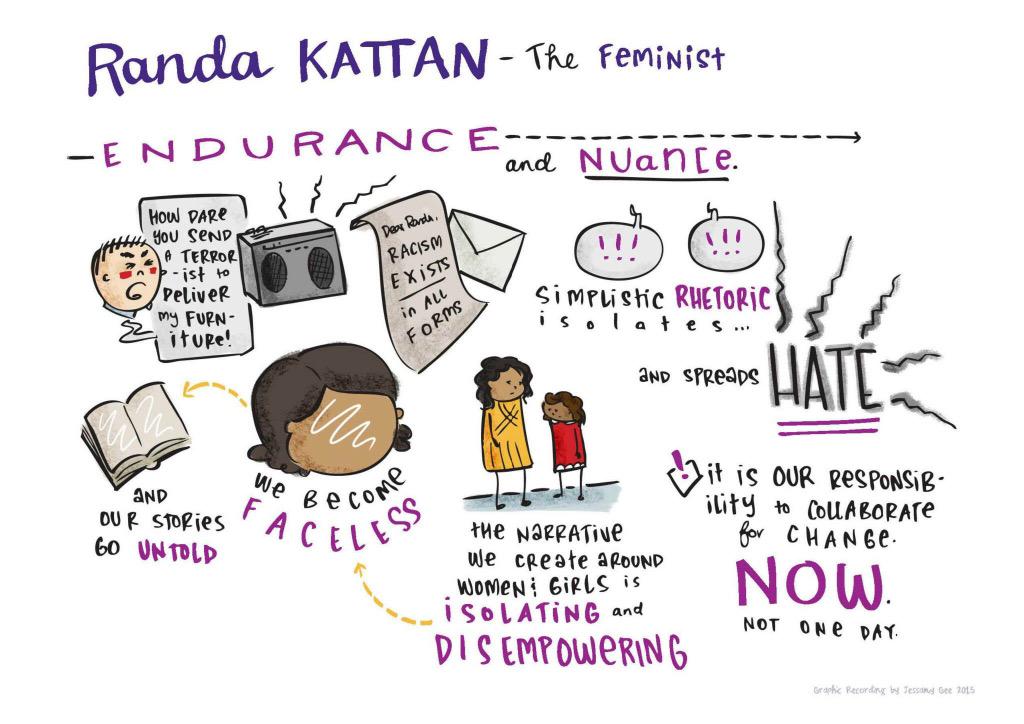 Randa KATTAN - The Feminist
- ENDURANCE
and NUANCE.
HOW DARE
YOU SEND
A TERROR
-IST to
DELIVER
my FURN-
ITURE!
Dear Randa,
RACISM
EXISTS
in ALL
FORMS
SIMPLISTIC RHETORIC
isolates...
AND SPREADS
HATE
WE BECOME
FACELESS
AND
OUR STORIES
GO UNTOLD
THE NARRATIVE
WE CREATE AROUND
WOMEN & GIRLS is
ISOLATING and
DISEMPOWERING
! it is OUR RESPONSIB-
ILITY to COLLABORATE
for CHANGE.
NOW.
NOT ONE DAY.
Graphic Recording by Jessamy Gee 2015